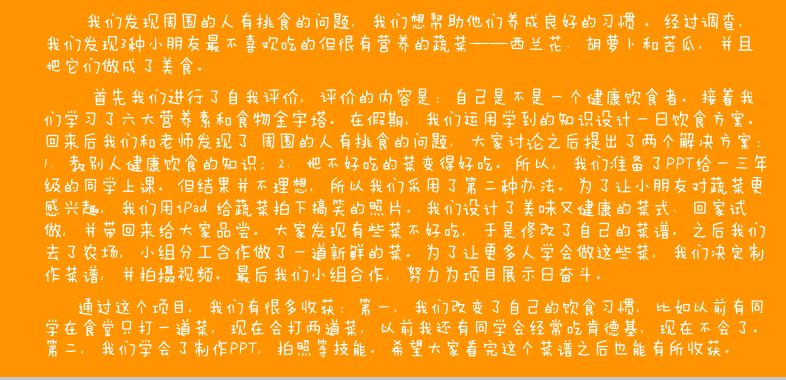 我们发现周围的人有挑食的问题，我们想帮助他们养成良好的习惯。经过调查，
我们发现3种小朋友最不喜欢吃的但很有营养的蔬菜——西兰花、胡萝卜和苦瓜，并且
把它们做成了美食。
首先我们进行了自我评价，评价的内容是：自己是不是一个健康饮食者。接着我
们学习了六大营养素和食物金字塔。在假期，我们运用学到的知识设计一日饮食方案。
回来后我们和老师发现了 周围的人有挑食的问题，大家讨论之后提出了两个解决方案：
1. 教别人健康饮食的知识；2. 把不好吃的菜变得好吃。所以，我们准备了PPT给一三年
级的同学上课。但结果并不理想，所以我们采用了第二种办法。为了让小朋友对蔬菜更
感兴趣，我们用iPad 给蔬菜拍下搞笑的照片。我们设计了美味又健康的菜式，回家试
做，并带回来给大家品尝。大家发现有些菜不好吃，于是修改了自己的菜谱。之后我们
去了农场，小组分工合作做了一道新鲜的菜。为了让更多人学会做这些菜，我们决定制
作菜谱，并拍摄视频。最后我们小组合作，努力为项目展示日奋斗。
通过这个项目，我们有很多收获：第一，我们改变了自己的饮食习惯，比如以前有同
学在食堂只打一道菜，现在会打两道菜，以前我还有同学会经常吃肯德基，现在不会了。
第二，我们学会了制作PPT，拍照等技能。希望大家看完这个菜谱之后也能有所收获。